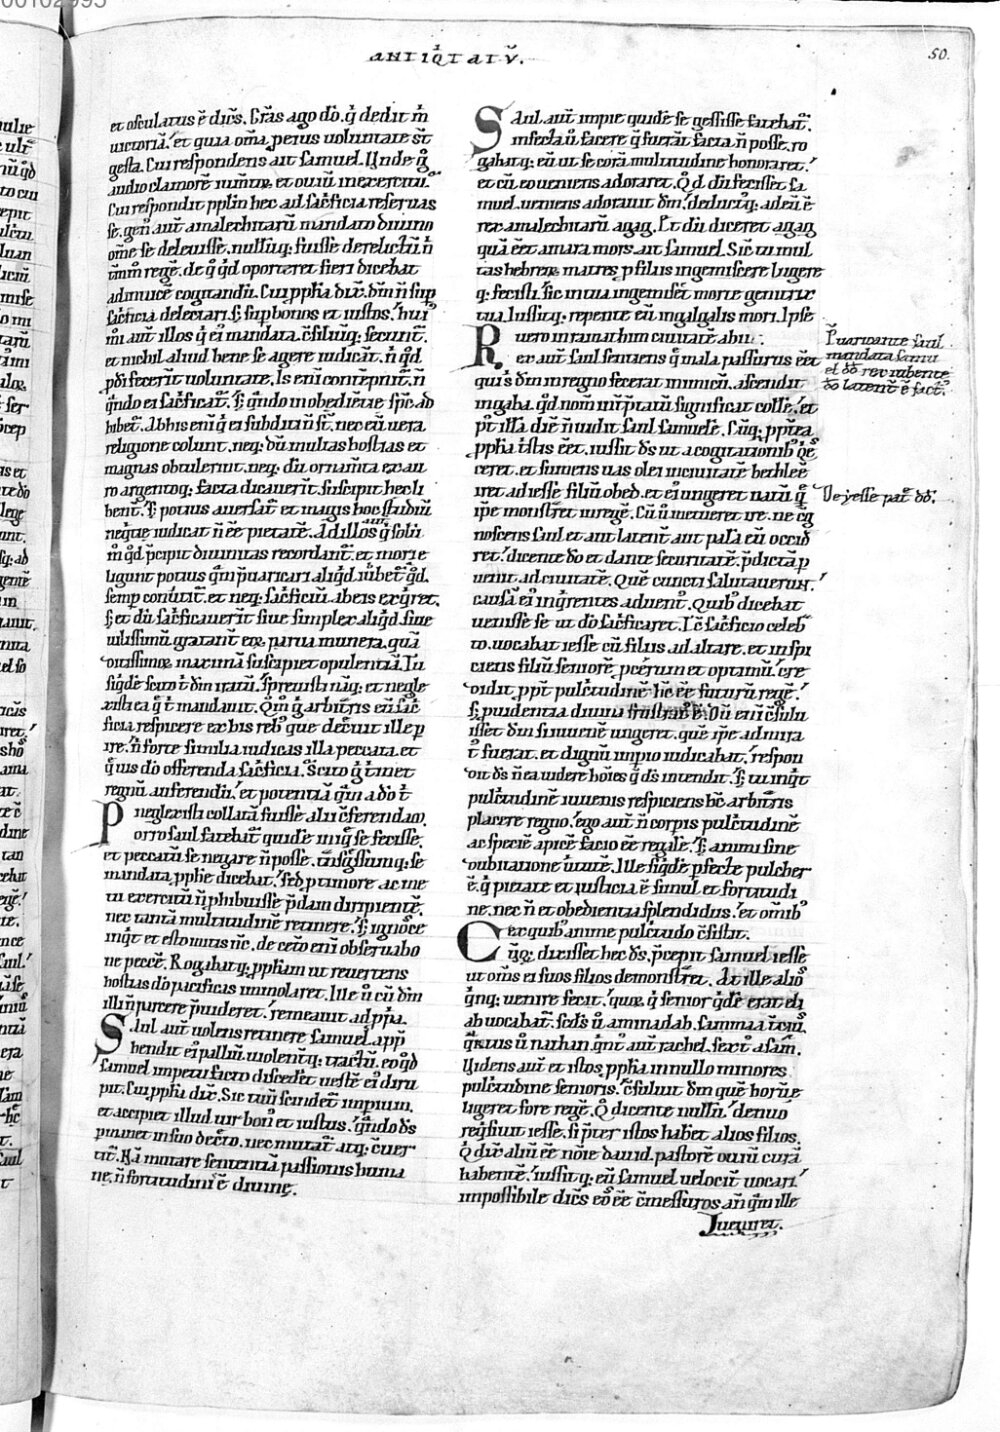 ANTIQ̓TATV̄.
50.
et osculatus ē dic̄s. Gr̄as ago dō. q̓ dedit m̓
uictoriā. et quia om̄a p̱ eius uoluntate s̄t
gesta. Cui respondens ait samuel. Vnde g̊
audio clamorē
Cui respondit pplm̄ hec ad sac̓ficia reseruas
se. gen̓ aut̄ amalechitarū mandato diuino
om̄e se deleuisse. nullūq; fuisse derelictū n̓
tm̄m̊ regē. de q̊ q̓d oporteret fieri dicebat
adinuicē cogitandū. Cui ppħa dix̄. dm̄ n̄ sup̱
sac̓ficia delectari. s; sup̱ bonos et iustos. hui᷒
m̊i aut̄ illos q̓ ei᷒ mandata c̄siliūq; secunt̄.
et nichil aliud bene se agere iudicāt. n̓ q̓d
religione colunt. neq; dū multas hostias et
magnas obtulerint. neq; dū ornam̄ta ex au
ro argentoq; facta dicauerīt. suscipit hec li
bent̄. s; potius auersat̄ et magis hoc studiū
neq̓tie iudicat n̄ ēē pietatē. Ad illos q̊ solū
m̊ q̓d p̄cipit diuinitas recordant̄. et mori e
ligunt potius q̄m p̄uaricari aliq̓d iubet̄. q̓d
semp̱
s; et dū sac̓ficauerīt siue simplex aliq̓d siue
uilissimū gratant̄ eoꝝ parua munera. quā
ditissimoꝝ maximā suscipiet opulentiā. Tu
siq̓dē scito t̓ dm̄ iratū. spreuisti nāq; et negle
xisti ea q̓ t̓ mandauit.
ficia respicere ex his reb᷒ que decreuit ille p̱
ire. n̓ forte similia iudicas illa peccata. et
q̓ ius dō offerenda sac̓ficia. Scito q̓ t̓met
regnū auferendū. et potentiā q̄m a dō t̓
neglexisti collatā fuisse alii c̄ferendam.
Porro saul fatebat̄ quidē iniq̓ se fecisse.
et peccatū se negare n̄ posse. t̄nsg̓ssumq; se
mandata ppħe dicebat. sed p̱ timore ac me
tu exercitū n̄ phibuisse p̄dam diripientē.
nec tantā multitudinē retinere. s; ignosce
inq̓t et esto mitis n̄c. de cet̓o eni᷒ obseruabo
ne peccē. Rogabatq; ppħam ut reuertens
hostias dō pacificas immolaret. Ille ū cū dm̄
illi n̄ parcere p̄uideret. remeauit ad pp̱a.
Saul aut̄ uolens retinere samuel. app̱
hendit ei᷒ palliū. uiolentq; tractū. eo q̓d
samuel impetu facto discederet uestē ei᷒ diru
pit. Cui ppħa dix̄. Sic tuū scindet̄ imp̱ium.
et accipiet illud uir bon᷒ et iustus. q̄ndo ds̄
p̱manet in suo decreto. nec mutat̄ atq; c̄uer
tit̄. Nā mutare sententiā passionis huma
ne. n̄ fortitudinis ē diuinę.
Saul aut̄ impie quidē se gessisse fatebat̄.
infecta ū facere q̓ fuerāt facta n̄ posse. ro
gabatq; eū ut se corā multitudine honoraret.
et cū eo ueniens adoraret. Q̓d dū fecisset sa
muel. ueniens adorauit dm̄. deductq; ad eū ē
rex amalechitarū agag. Et dū diceret agag
quā ēēt amara mors. ait samuel. Sic̄ tu mul
tas hebreoꝝ matres p̱ filiis ingemiscere lugere
q; fecisti. sic in tua ingemiset morte genitrix
tua. Iussitq; repente eū in galgalis mori. Ipse
uero in ramathim ciuitatē abiit.
Rex aut̄ saul sentiens q̓ mala passurus ēēt
qui s̓ dm̄ in regno fecerat inimicū. ascendit
in gaba. q̓d nom̄ int̓p̄tatū significat colle. et
p᷒t illā diē n̄ uidit saul samuele. Cūq; ppt̓ea
ppħa t̓stis ēēt. iussit ds̄ ut a cogitationib᷒
ceret. et sumens uas olei in ciuitatē bethleē
iret ad iesse filiū obed. et ei᷒ ungeret natū q̄
ip̄e monstret in regē. Cū ū metueret ire. ne
noscens saul et aut latent̄ aut palā eū occid̓
ret. dicente dō et dante securitatē. p̄dictā p̱
uenit ad ciuitatē. Quē cuncti salutauerunt.
causā ei᷒ inq̓rentes aduent᷒. Quib᷒ dicebat
uenisse se ut dō sac̓ficaret. Et sac̓ficio celeb̓
to. uocabat iesse cū filiis ad altare. et inspi
ciens filiū seniorē pcerum et optimū. cre
didit ppt̓ pulc̓tudinē hc̄ ēē futurū regē.
s; puidentia diuina frustrat᷒ ē. Dū eni᷒ c̄sulu
isset dm̄ si iuuenē ungeret. quē ip̄e admira
t᷒ fuerat. et dignū imp̱io iudicabat. respon
dit ds̄ n̄ ea uidere hōies q̓ ds̄ intendit. s; tu inq̓t
pulc̓tudinē iuuenis respiciens hc̄ arbitris
placere regno. ego aut̄ n̄ corpis pulc̓tudinē
ac speciē apicē facio ēē regale. s; animi sine
dubitatione uirtutē. Ille siq̓dē p̱fecte pulcher
ē. q̓ pietate et iusticia ē simul et fortitudi
ne. nec n̄ et obedientia splendidus. et om̄ib᷒
ex quib᷒ anime pulc̓tudo c̄sistit.
Cūq; dixisset hec ds̄. p̄cepit samuel iesse
ut om̄s ei suos filios demonstret. At ille alios
q̓nq; uenire fecit. quoꝝ q̓ senior q̓dē erat eli
ab uocabat̄. scds̄ ū aminadab. sammaa t̓cius.
q̓rtus ū nathan. q̓nt᷒ aut̄ rachel. sext᷒ asam.
Videns aut̄ et istos ppħa in nullo minores
pulc̓tudine senioris. c̄suluit dm̄ que horū e
ligeret fore regē. Q̊ dicente nullū. denuo
req̓siuit iesse. si p̄ter istos habet alios filios.
Q̓ dix̄ aliū ēē nōie dauid. pastorē ouiū curā
habentē. iussitq; eū samuel uelocit̓ uocari.
impossibile dic̄s eo᷒ ēē c̄messuros an̄ q̄m ille
Iueniret.
P̄uaricante saul
mandata samu
el dō rex iubente
dō latent̄ ē fact᷒.
De yesse pat̄ dd̄.